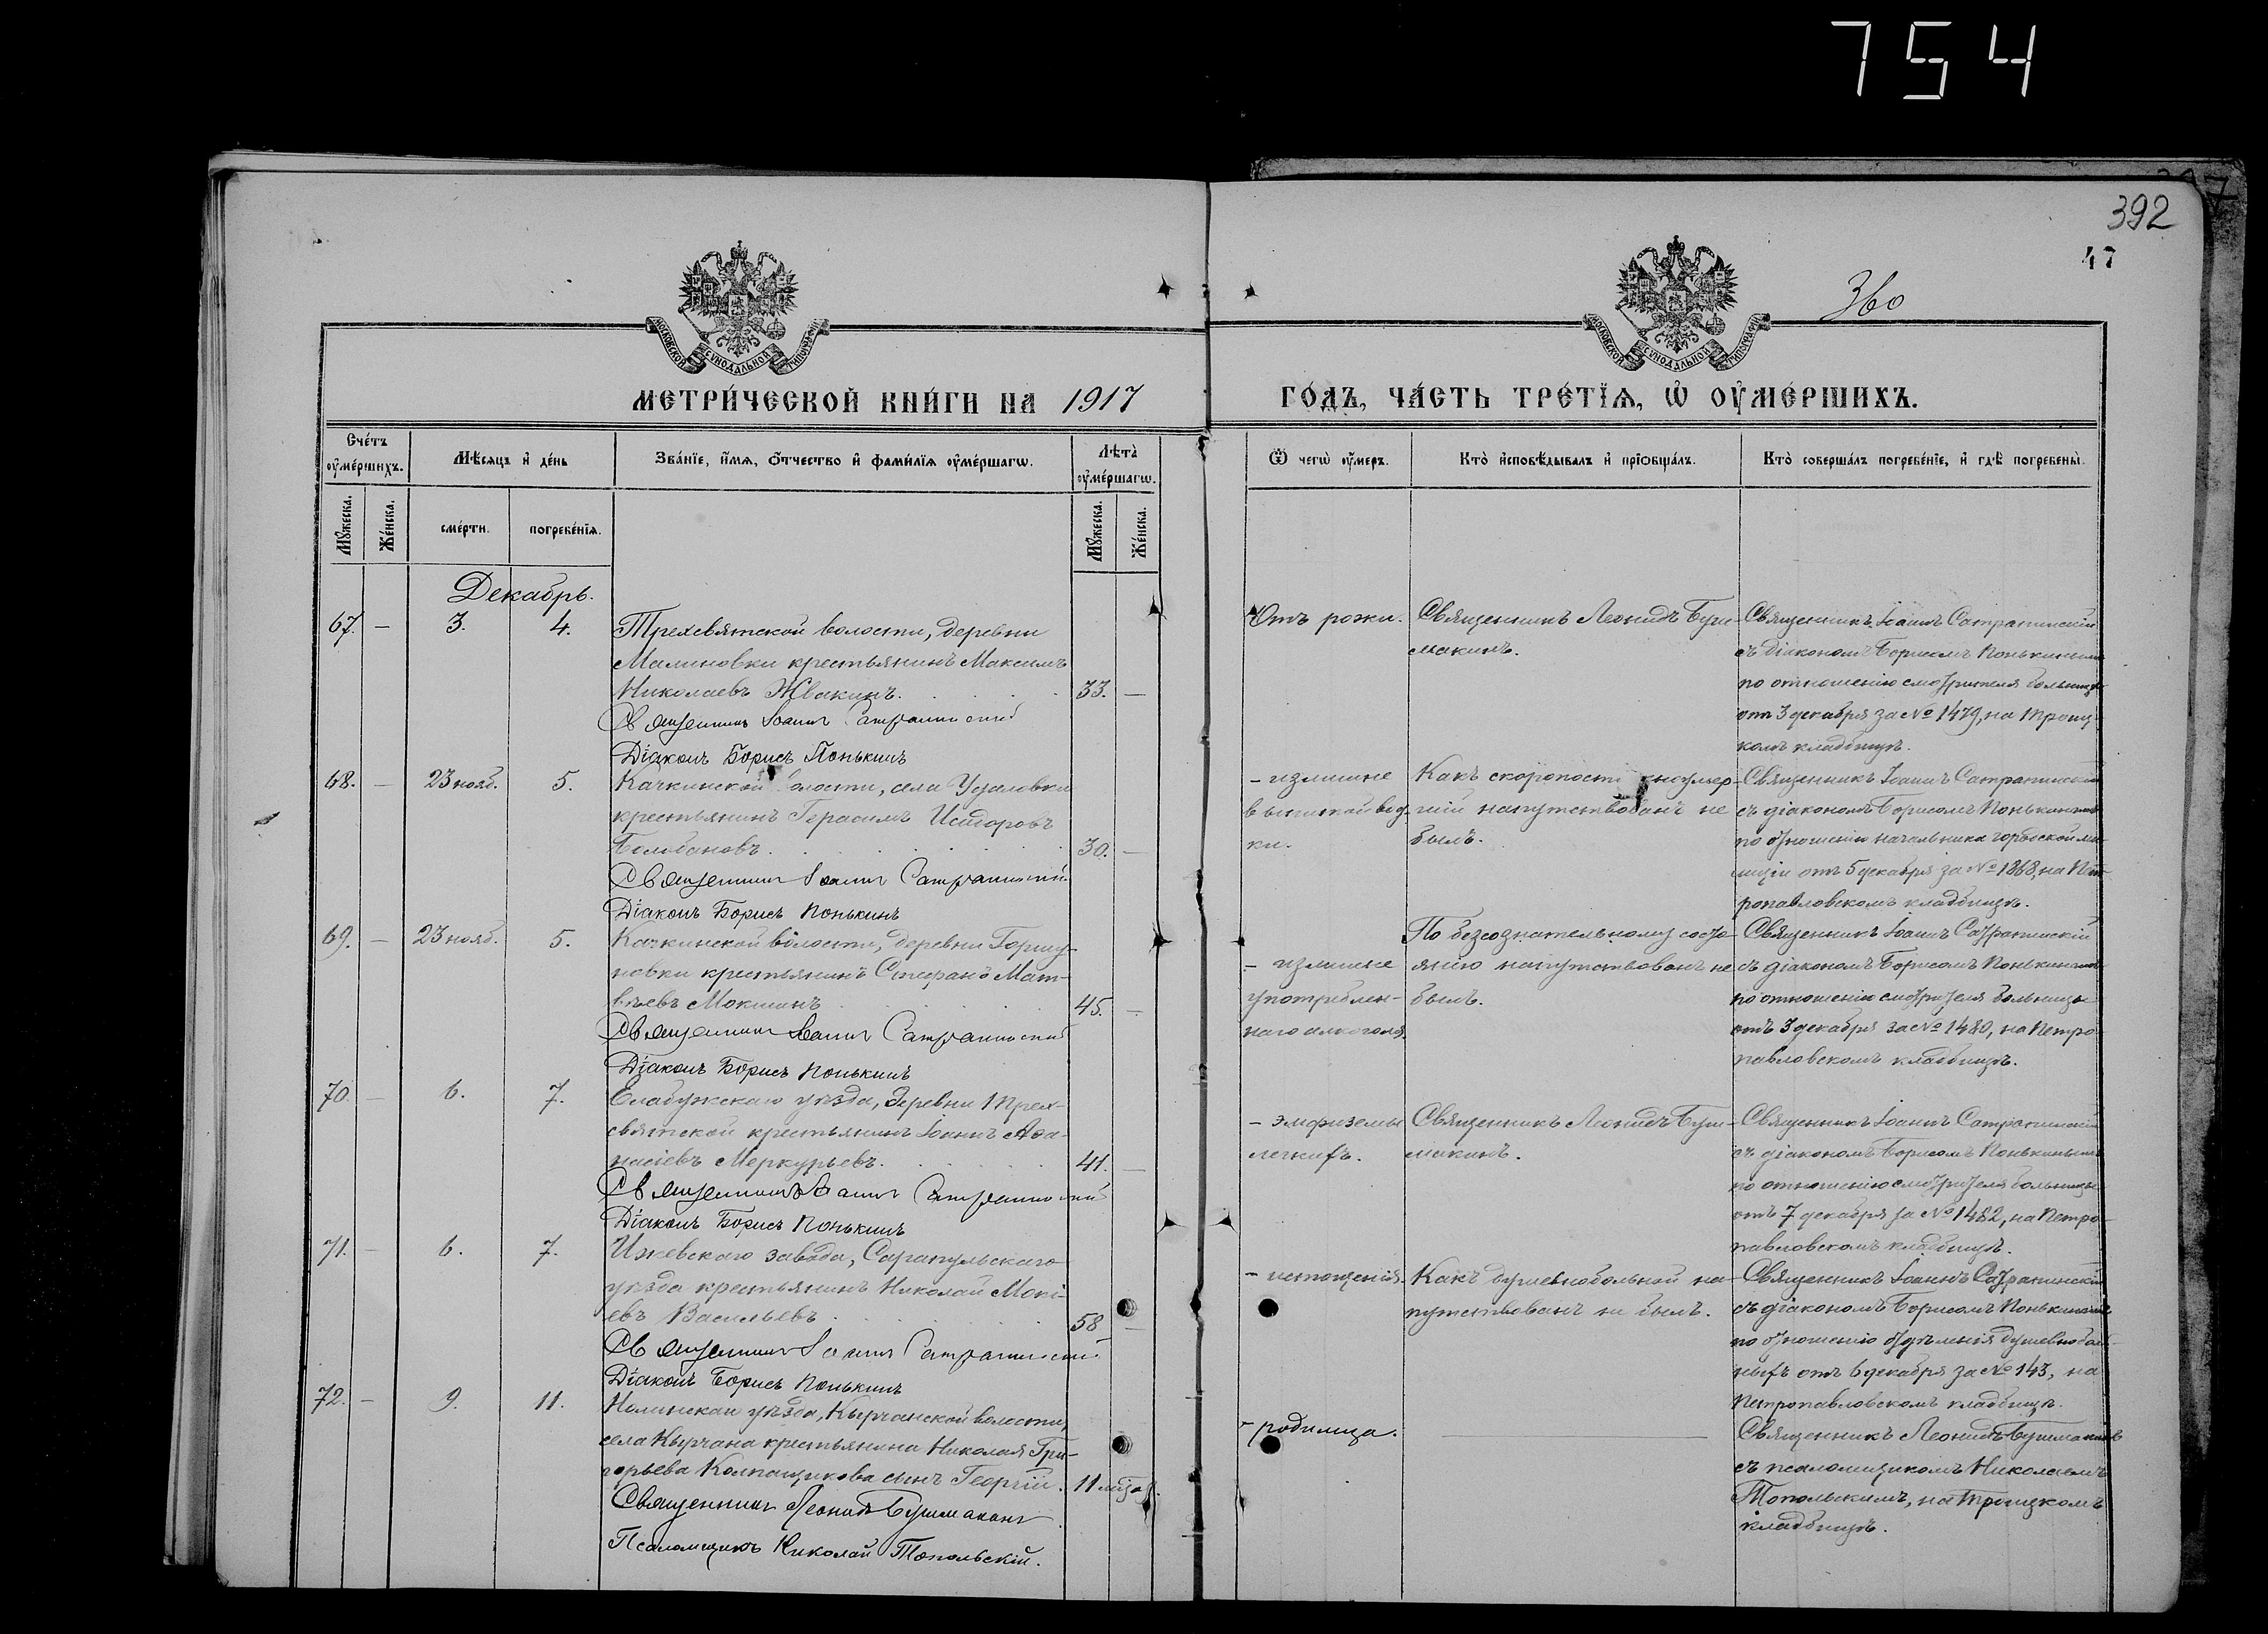 754
392
47
360
МОСКОВСКОЙ СѴНОДАЛЬНОЙ ТИПОГРАФІИ
МОСКОВСКОЙ СѴНОДАЛЬНОЙ ТИПОГРАФІИ
МЕТРИ́ЧЕСКОЙ КНИ́ГИ НА 1917
ГО́ДЪ, ЧА́СТЬ ТРЕ́ТЇѦ, Ѡ҆ ОУ҆МЕ́РШИХЪ.
Сче́тъ оу҆ме́ршихъ.
Мѣ́сяцъ и҆ де́нь
Зва́нїе, и҆́мѧ, ѻ҆́тчество и҆ фами́лїѧ оу҆ме́ршагѡ.
Лѣ́та оу҆ме́ршагѡ.
Ѿ чегѡ̀ оу҆́меръ.
Кто̀ и҆сповѣ́дывалъ и҆ прїѡбща́лъ.
Кто̀ соверша́лъ погребе́нїе, и҆ гдѣ̀ погребены̀.
Мꙋ́жеска.
Же́нска.
сме́рти.
погребе́нїѧ.
Мꙋ́жеска.
Же́нска.
Декабрь.
67. — 3. 4.
Трехсвятской волости, деревни
Малиновки крестьянинъ Максимъ
Николаевъ Жвакинъ. 33. —
Священникъ Іоаннъ Сатрапинскій
Діаконъ Борисъ Понькинъ
Отъ рожи.
Священникъ Леонидъ Буш-
макинъ.
Священникъ Іоаннъ Сатрапинскій
съ діакономъ Борисомъ Понькинымъ
по отношенію смотрителя больницы
отъ 3 декабря за № 1479, на Троиц-
комъ кладбищѣ.
68. — 23 нояб. 5.
Качкинской волости, села
крестьянинъ Герасимъ Исидоровъ
Болобановъ. 30. —
Священникъ Іоаннъ Сатрапинскій
Діаконъ Борисъ Понькинъ
- излишне
выпитой вод-
ки.
Какъ скоропостижно умер-
шій напутствованъ не
былъ.
Священникъ Іоаннъ Сатрапинскій
съ діакономъ Борисомъ Понькинымъ
по отношенію начальника городской ми-
лиціи отъ 5 декабря за № 1868, на Пет-
ропавловскомъ кладбищѣ.
69. — 23 нояб. 5.
Качкинской волости, деревни
крестьянинъ Стефанъ Мат-
вѣевъ Мокшинъ 45. —
Священникъ Іоаннъ Сатрапинскій
Діаконъ Борисъ Понькинъ
- излишне
употреблен-
наго алкоголя.
По безсознательному состо-
янію напутствованъ не
былъ.
Священникъ Іоаннъ Сатрапинскій
съ діакономъ Борисомъ Понькинымъ
по отношенію смотрителя больницы
отъ 3 декабря за № 1480, на Петро-
павловскомъ кладбищѣ.
70. — 6. 7.
Елабужскаго уѣзда, деревни Трех-
святской крестьянинъ Іоаннъ Аѳа-
насіевъ Меркурьевъ. 41. —
Священникъ Іоаннъ Сатрапинскій
Діаконъ Борисъ Понькинъ
- эмфиземы
легкихъ.
Священникъ Леонидъ Буш-
макинъ.
Священникъ Іоаннъ Сатрапинскій
съ діакономъ Борисомъ Понькинымъ
по отношенію смотрителя больницы
отъ 7 декабря за № 1482, на Петро-
павловскомъ кладбищѣ.
71. — 6. 7.
Ижевскаго завода, Сарапульскаго
уѣзда крестьянинъ Николай Мокі-
евъ Васильевъ 58 —
Священникъ Іоаннъ Сатрапинскій
Діаконъ Борисъ Понькинъ
- истощенія.
Какъ душевнобольной на-
путствованъ не былъ.
Священникъ Іоаннъ Сатрапинскій
съ діакономъ Борисомъ Понькинымъ
по отношенію отдѣленія душевноболь-
ныхъ отъ 6 декабря за № 143, на
Петропавловскомъ кладбищѣ.
72. — 9. 11.
Нолинскаго уѣзда, Кырчанской волости,
села Кырчана крестьянина Николая Гри-
горьева Колпащикова сынъ Георгій. 11 мѣс.
Священникъ Леонидъ Бушмакинъ
Псаломщикъ Николай Топольскій.
- родимца.
Священникъ Леонидъ Бушмакинъ
съ псаломщикомъ Николаемъ
Топольскимъ, на Троицкомъ
кладбищѣ.